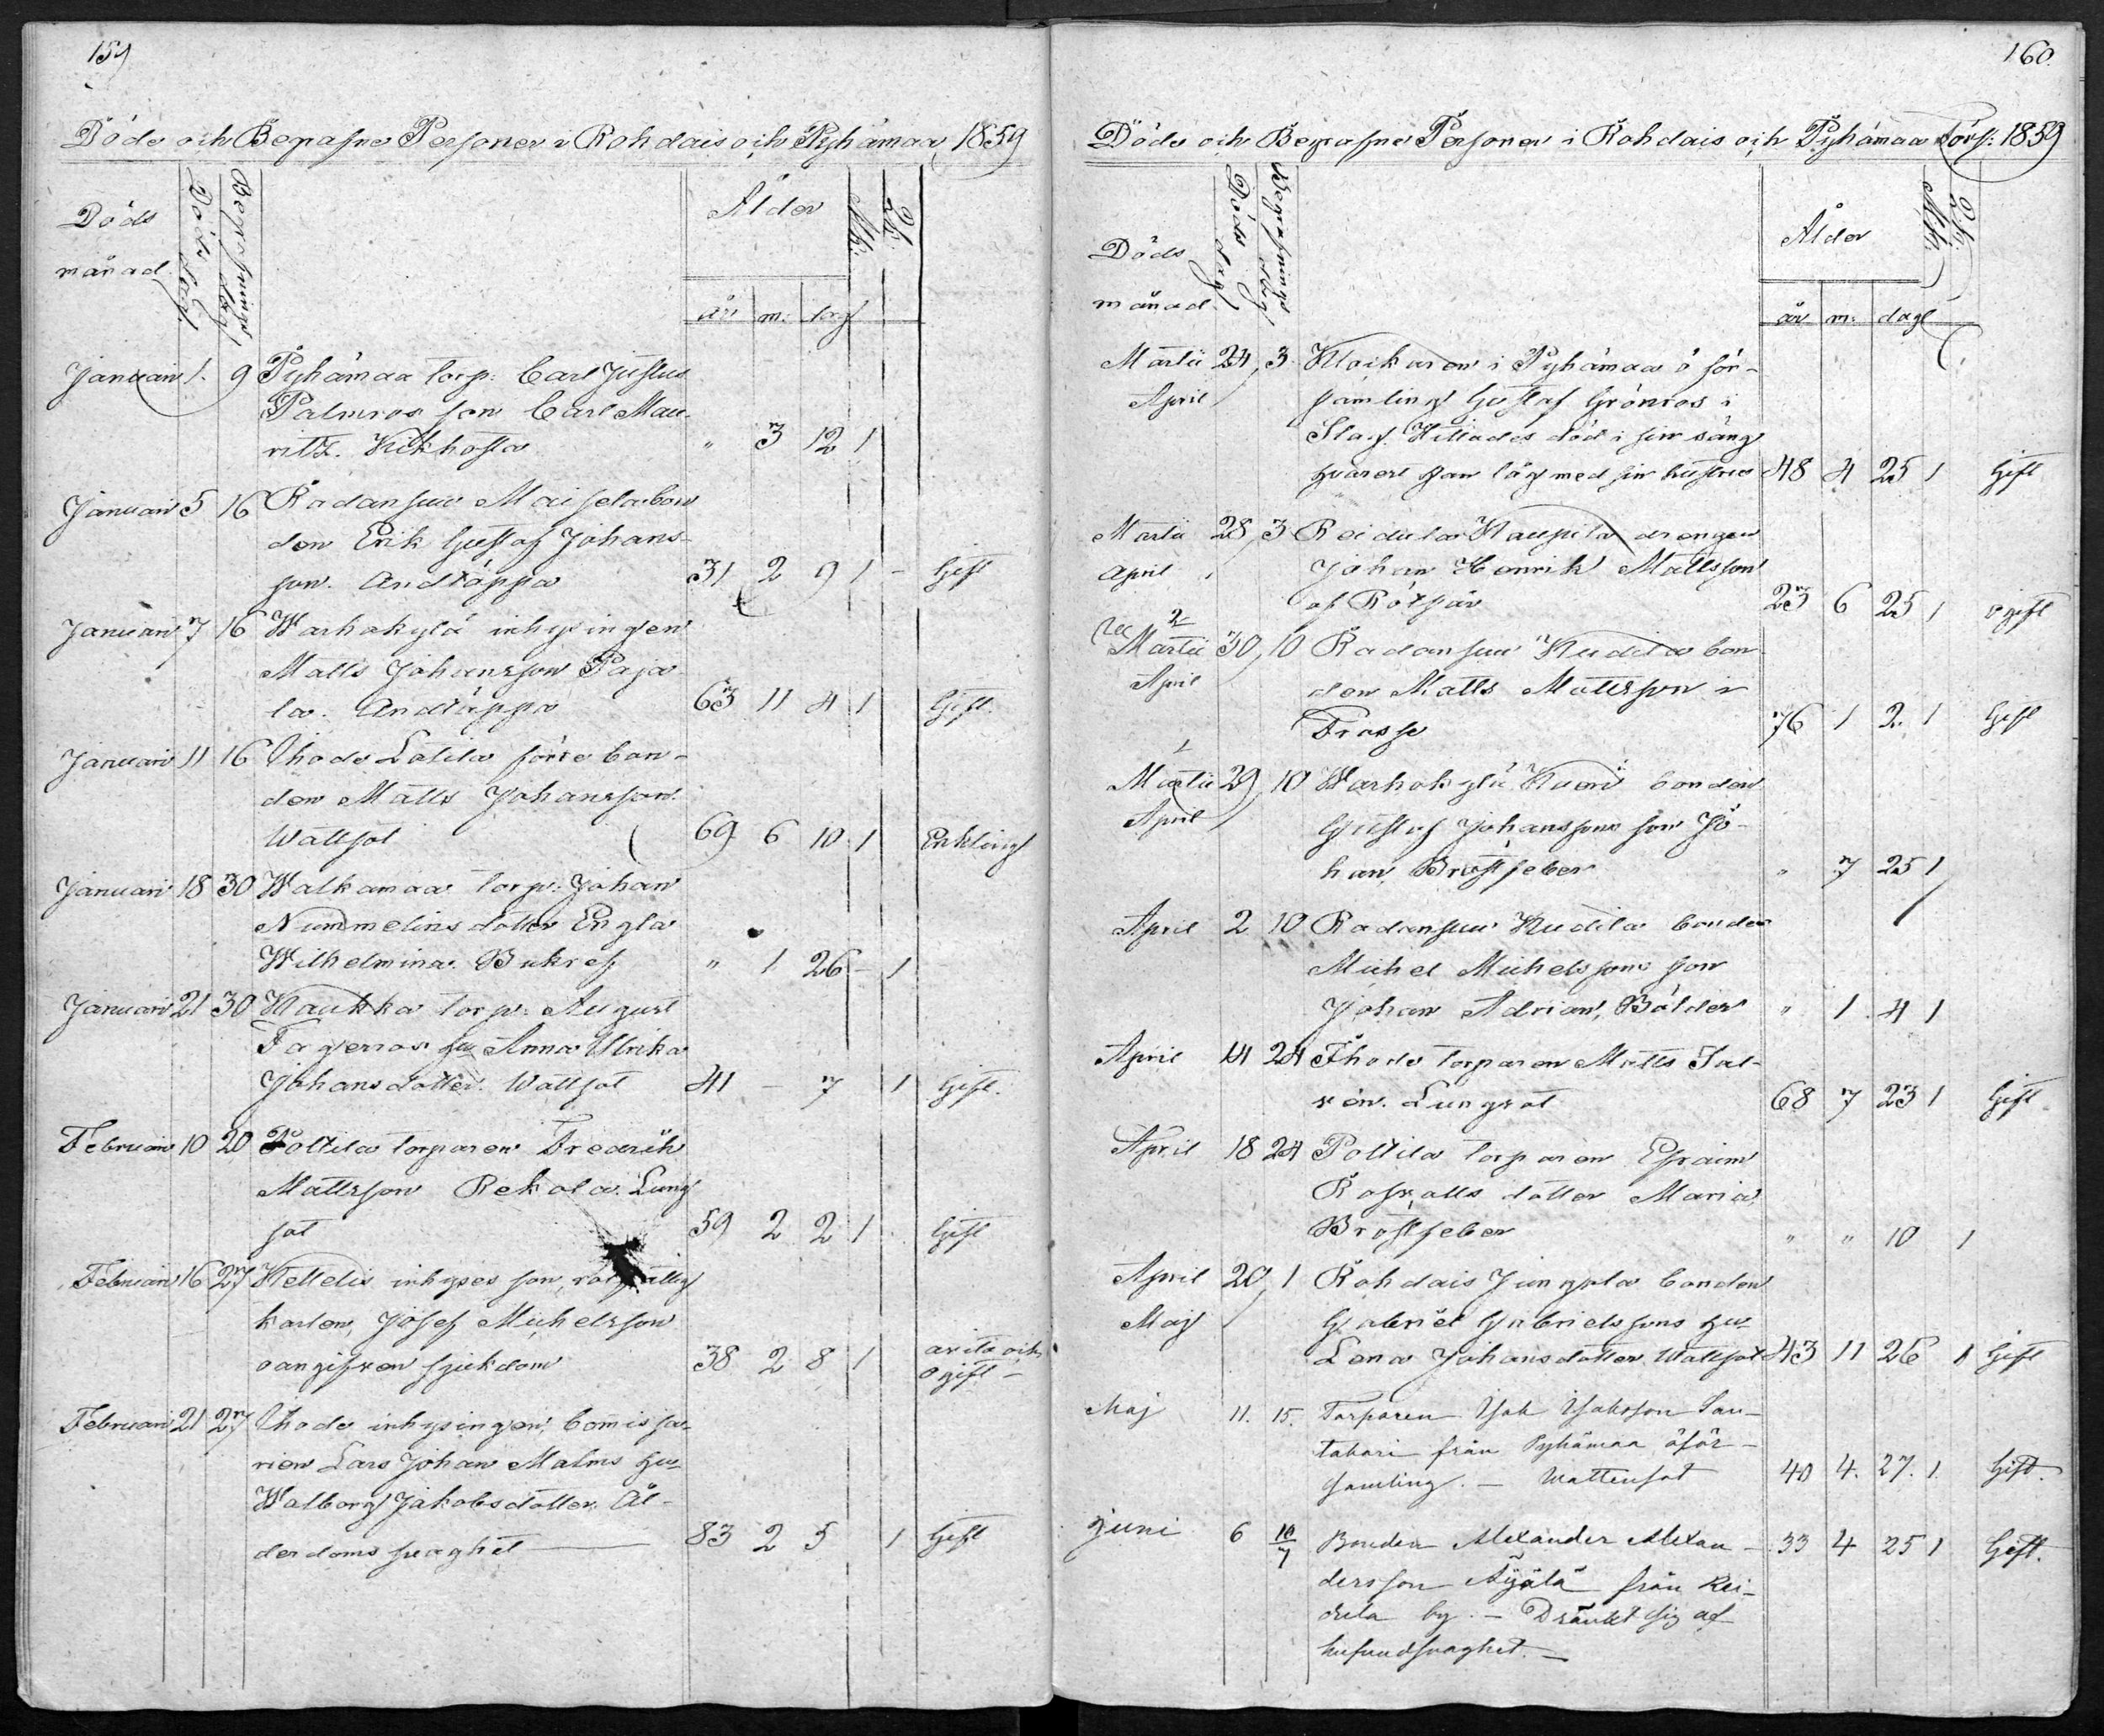 159
Döde och Begrafne Personer i Rohdais och Pyhämaa 1859
Döds
månad.
Döds dag.
Begrafnings dag
Ålder
år m: dag
Mk: Qk:
Januari 1. 9 Pyhämaa torp: Carl Justus
Palmros son Carl Mau-
ritz. Kikhosta " 3 12 1
Januari 5 16 Radansuu Maisela bon
den Erik Gustaf Johans-
son. Andtäppa 31 2 9 1 - Gift
Januari 7 16 Warhokylä inhysingen
Matts Johansson Paja
la. Andtäppa 63 11 4 1 Gift.
Januari 11 16 Ihode Latila förre bon-
den Matts Johansson.
Wattsot 69 6 10 1 Enkling
Januari 18 30 Walkamaa torp: Johan
Nummelins dotter Engla
Wilhelmina. Bukref " 1 26 - 1
Januari 21 30 Kaukka torp: August
Fagerros hu Anna Ulrika
Johansdotter. Wattsot 41 - 7 1 Gift.
Februari 10 20 Poltila torparen Fredrik
Mattsson Rekola. Lung
sot 59 2 2 1 Gift
Februari 16 27 Kettelis inhyses son,
karlen, Josef Michelsson
oangifven sjukdom 38 2 8 1 ogift -
Februari 21 27 Ihode inhysingen, Comissa-
rien Lars Johan Malms hu
Walborg Jakobsdotter. Ål-
derdoms svaghet 83 2 5 1 Gift
160.
Döde och Begrafne Personer i Rohdais och Pyhämaa förs: 1859
Döds
månad.
Döds dag
Begrafnings dag
Ålder
år m: dagl
Mk: Qk:
Martii 24, 3. Klockaren i Pyhämaa ö för-
April samling Gustaf Grönros i
Slag. Hittades död i sin säng
hvarest han låg med sin hustru 48 4 25 1 Gift
Martii 28, 3 Reidula Kaupila drengen
April Johan Henrik Mattsson
af Rötsår 23 6 25 1 ogift
2
Martii 30, 10 Radansuu Kudila bon
April den Matts Mattsson i
Frossa 76 1 2. 1 Gift
1
Martii 29, 10 Warhokylä Kueni bonden
April Gustaf Johanssons son Jo-
han, Bröstfeber " 7 25 1
April 2 10 Radansuu Kudila bonden
Michel Michelssons son
Johan Adrian, Bölder " 1. 4 1
April 14 24 Ihode torparen Matts Sal-
rén. Lungsot 68 7 23 1 Gift
April 18 24 Poltila torparen Efraim
Rosqvists dotter Maria,
Bröstfeber " " 10 1
April 20, 1 Rohdais Junnila bonden
Maj Gabriel Gabrielssons hu
Lena Johansdotter. Wattsot 43 11 26 1 Gift
Maj 11. 15. Torparen Isak Isaksson San-
takari från Pyhämaa öför-
samling. - Wattensot 40 4. 27. 1. Gift.
Juni 6 10/7 Bonden Alexander Alexan- 33 4 25 1 Gift.
dersson Äyälä från Rei-
dula by. - Dränkt sig af
hufvudsvaghet. -